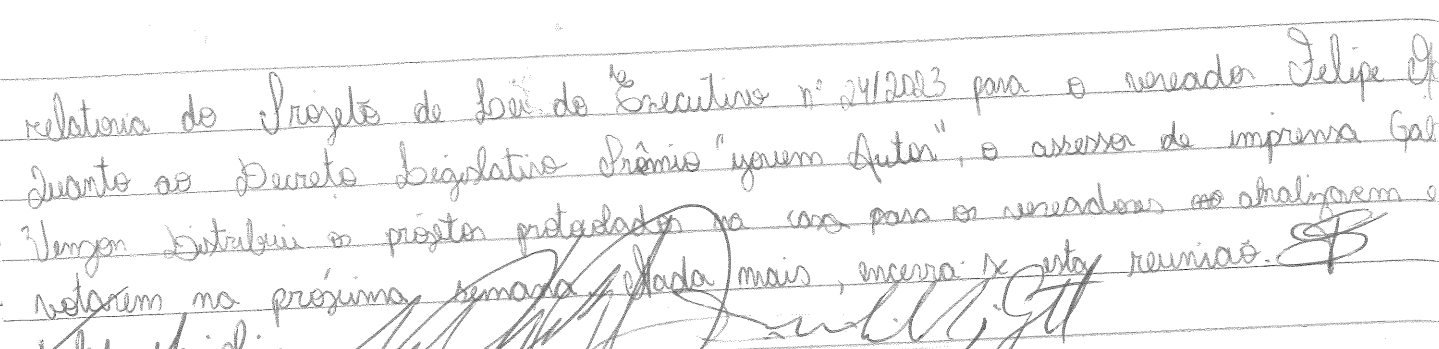 relatoria do Projeto de Lei do Executivo nº 24/2023 para o vereador Felipe
Quanto ao Decreto Legislativo Prêmio "Jovem Autor", o assessor de imprensa Gab
Venzon distribui os projetos protocolados na casa para os vereadores analizarem e
votarem na próxima semana. Nada mais, encerra-se esta reunião.